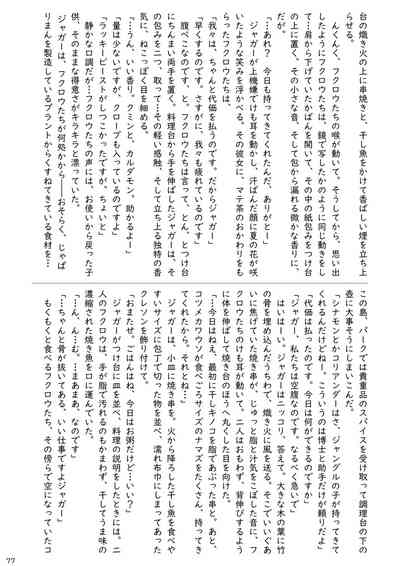 台の熾き火の上に串焼きと、干し魚をかけて香ばしい煙を立上
らせる。
んくんく、フクロウたちの喉が動いて。そうしてから、思い出
したようにフクロウたちは、鏡で写したかのように同じ動きをし
て、肩から下げていたかばんを開いて、その中の紙包みをつけ台
の上に置く。その小さな音、そして包から漏れる微かな香りに、
「…あれ？ 今日も持ってきてくれたんだ。ありがとー」
ジャガーが上機嫌でけも耳を動かし、汗ばんだ顔に夏の花が咲
いたような笑みを浮かべる。その彼女に、マテ茶のおかわりをも
らったフクロウたちは、
「我々は、ちゃんと代価を払うのです。だからジャガー」
「早くするのです。さすがに、我々も疲れているのです」
腹ぺこなのです、と。フクロウたちは言って、とん、とつけ台
にちんまい両手を置く。料理台から手を伸ばしたジャガーは、そ
の包みを二つ、取って…その軽い感触、そして立ち上る独特の香
気に、ねこっぽく目を細める。
「…うん、いい香り。クミンと、カルダモン。助かるよー」
「量は少ないですが、クローブも入っているのですよ」
「ラッキービーストがしつこかったですが、ちょいと」
静かな口調だが…フクロウたちの声には、お使いから戻った子
供、そのままな得意さがキラキラと漂っていた。
ジャガーは、フクロウたちが何処かから――おそらく、じゃぱ
りまんを製造しているプラントからくすねてきている食材を…
この島、パークでは貴重品のスパイスを受け取って調理台の下の
壺に大事そうにしまいこんだ。
「シナモンとかコリアンダーは、ジャングルの子が持ってきて
くれるんだけどねー。こういうのは博士と助手だけが頼りだよ」
「代価は払ったのです。今日は何ができるのですか」
「ジャガー、私たちは空腹なのです。なるべく急いで」
はいはーい。ジャガーはニッコリ、答えて。大きな木の葉に竹
の骨を埋め込んだうちわで、熾き火に風を送る。そこでいいぐあ
いに焦げていた焼き串が、じゅっと脂と汁気をこぼした音に、フ
クロウたちのけも耳が動いて。二人はおもわず、背伸びするよう
に体を伸ばして焼き台のほうへ丸くした目を向けた。
「…今日はねえ、最初に干しキノコを脂であぶった串と。あと、
コツメカワウソが食べごろサイズのナマズをたくさん、持ってき
てくれたから。それとね…」
ジャガーは、小皿に焼き串を。火から降ろした干し魚を食べや
すいサイズに包丁で切った物を並べ、濡れ布巾にしまってあった
クレソンを飾り付けて。
「おまたせ。ごはんはね、今日はお粥だけど…いい？」
ジャガーがつけ台に皿を並べ、料理の説明をしたときには。二
人のフクロウは、手が脂で汚れるのもかまわず、干してうま味の
濃縮された焼き魚を口に運んでいた。
「…ん、ん…む。…まあまあ、なのです」
「…ちゃんと骨が抜いてある。いい仕事ですよジャガー」
もくもくと食べるフクロウたち。その傍らで空になっていたコ
77